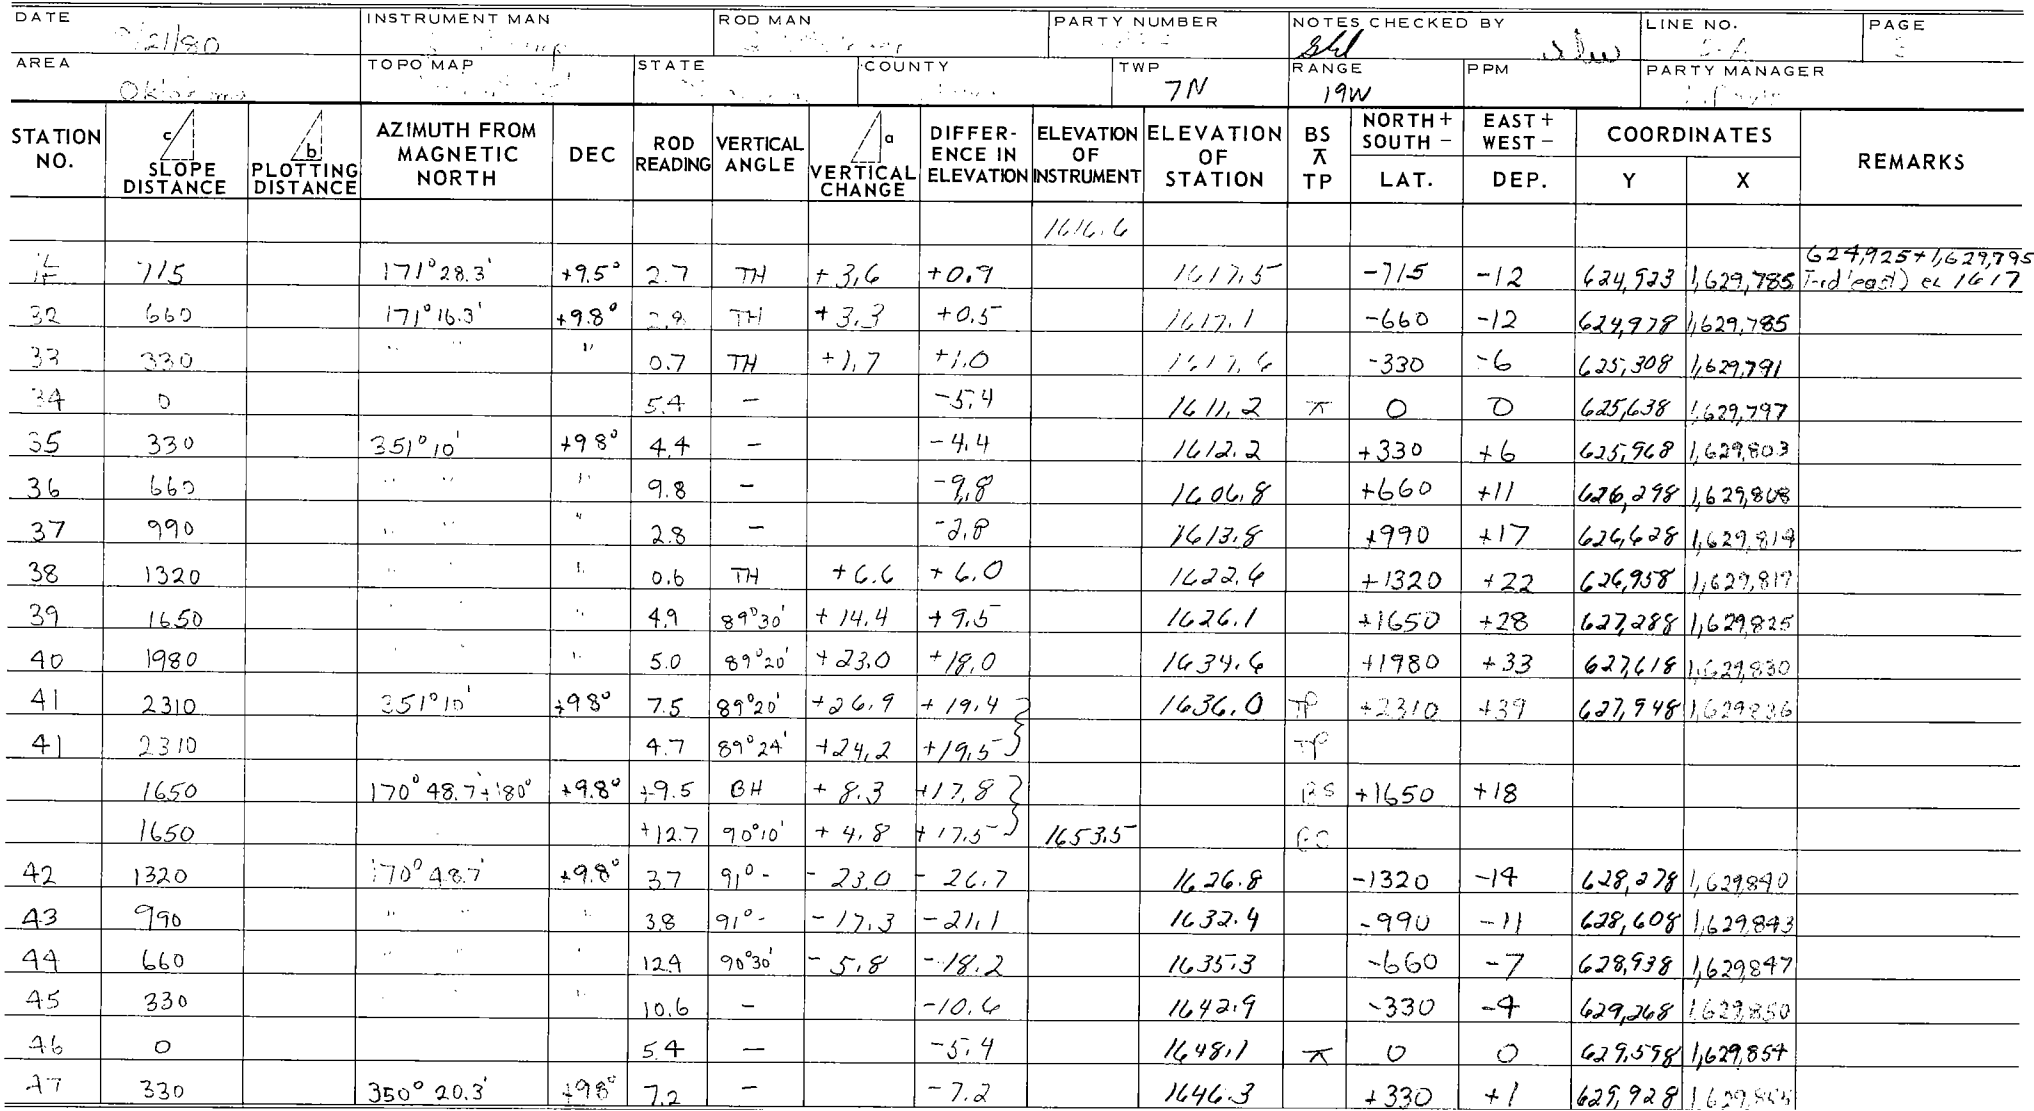 DATE INSTRUMENT MAN ROD MAN PARTY NUMBER NOTES CHECKED BY LINE NO. PAGE
21/80
AREA TOPO MAP STATE COUNTY TWP RANGE PPM PARTY MANAGER
Oklahoma 7N 19W
STATION NO. c SLOPE DISTANCE b PLOTTING DISTANCE AZIMUTH FROM MAGNETIC NORTH DEC ROD READING VERTICAL ANGLE a VERTICAL CHANGE DIFFER-ENCE IN ELEVATION ELEVATION OF INSTRUMENT ELEVATION OF STATION BS ⊼ TP NORTH + SOUTH − LAT. EAST + WEST − DEP. COORDINATES Y X REMARKS
1616.6
624,925 + 1,629,795
715 171°28.3' +9.5° 2.7 TH +3.6 +0.9 1617.5 -715 -12 624,923 1,629,785 el 1617
32 660 171°16.3' +9.8° 2.8 TH +3.3 +0.5 1617.1 -660 -12 624,978 1,629,785
33 330 " " " 0.7 TH +1.7 +1.0 1617.6 -330 -6 625,308 1,629,791
34 0 5.4 - -5.4 1611.2 ⊼ 0 0 625,638 1,629,797
35 330 351°10' +9.8° 4.4 - -4.4 1612.2 +330 +6 625,968 1,629,803
36 660 " " " 9.8 - -9.8 1606.8 +660 +11 626,298 1,629,808
37 990 " " " 2.8 - -2.8 1613.8 +990 +17 626,628 1,629,814
38 1320 " " " 0.6 TH +6.6 +6.0 1622.6 +1320 +22 626,958 1,629,819
39 1650 " " " 4.9 89°30' +14.4 +9.5 1626.1 +1650 +28 627,288 1,629,825
40 1980 " " " 5.0 89°20' +23.0 +18.0 1634.6 +1980 +33 627,618 1,629,830
41 2310 351°10' +9.8° 7.5 89°20' +26.9 +19.4 1636.0 TP +2310 +39 627,948 1,629,836
41 2310 4.7 89°24' +24.2 +19.5 TP
1650 170°48.7'+180° +9.8° +9.5 BH +8.3 +17.8 BS +1650 +18
1650 +12.7 90°10' +4.8 +17.5 1653.5 BS
42 1320 170°48.7' +9.8° 3.7 91°- -23.0 -26.7 1626.8 -1320 -14 628,278 1,629,840
43 990 " " " 3.8 91°- -17.3 -21.1 1632.4 -990 -11 628,608 1,629,843
44 660 " " " 12.4 90°30' -5.8 -18.2 1635.3 -660 -7 628,938 1,629,847
45 330 " " " 10.6 - -10.6 1642.9 -330 -4 629,268 1,629,850
46 0 5.4 - -5.4 1648.1 ⊼ 0 0 629,598 1,629,854
47 330 350°20.3' +9.8° 7.2 - -7.2 1646.3 +330 +1 629,928 1,629,855